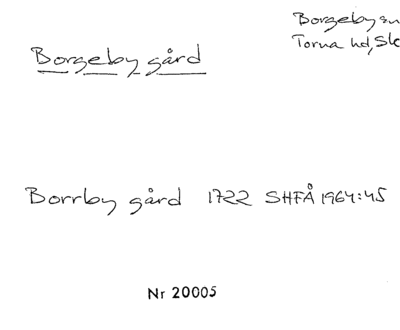 Borgeby sn
Torna hd, Sk
Borgeby gård
Borrby gård 1722 SHFÅ 1964:45
Nr 20005